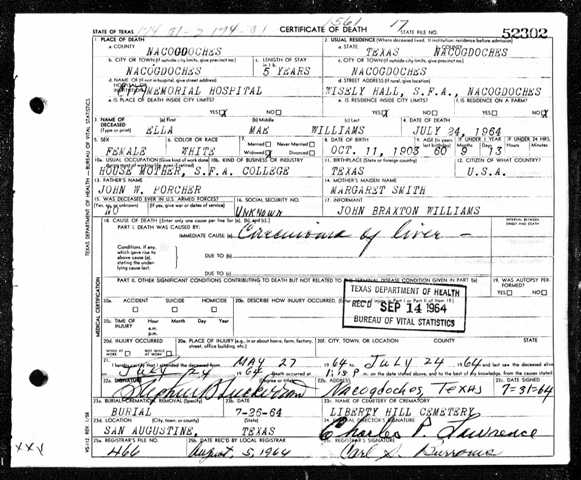 1561 17
STATE OF TEXAS CERTIFICATE OF DEATH STATE FILE NO. 52302
1. PLACE OF DEATH 2. USUAL RESIDENCE (Where deceased lived. If institution: residence before admission)
a. COUNTY a. STATE b. COUNTY
NACOGDOCHES TEXAS NACOGDOCHES
b. CITY OR TOWN (If outside city limits, give precinct no.) c. LENGTH OF STAY c. CITY OR TOWN (If outside city limits, give precinct no.)
NACOGDOCHES 5 YEARS NACOGDOCHES
d. NAME OF (If not in hospital, give street address) d. STREET ADDRESS (If rural, give location)
MEMORIAL HOSPITAL WISELY HALL, S.F.A., NACOGDOCHES
e. IS PLACE OF DEATH INSIDE CITY LIMITS? e. IS RESIDENCE INSIDE CITY LIMITS? f. IS RESIDENCE ON A FARM?
YES X NO YES X NO YES NO X
3. NAME OF DECEASED (Type or print) (a) First (b) Middle (c) Last 4. DATE OF DEATH
ELLA MAE WILLIAMS JULY 24, 1964
5. SEX 6. COLOR OR RACE 7. Married Never Married 8. DATE OF BIRTH 9. AGE IF UNDER 1 YEAR IF UNDER 24 HRS.
FEMALE WHITE Widowed X Divorced OCT. 11, 1903 60 9 13
10a. USUAL OCCUPATION (Give kind of work done 10b. KIND OF BUSINESS OR INDUSTRY 11. BIRTHPLACE (State or foreign country) 12. CITIZEN OF WHAT COUNTRY?
HOUSE MOTHER, S.F.A. COLLEGE TEXAS U.S.A.
13. FATHER'S NAME 14. MOTHER'S MAIDEN NAME
JOHN W. PORCHER MARGARET SMITH
15. WAS DECEASED EVER IN U.S. ARMED FORCES? 16. SOCIAL SECURITY NO. 17. INFORMANT
(Yes, no, or unknown) (If yes, give war or dates of service)
NO UNKNOWN JOHN BRAXTON WILLIAMS
18. CAUSE OF DEATH (Enter only one cause per line for (a), (b), and (c).) INTERVAL BETWEEN ONSET AND DEATH
PART I. DEATH WAS CAUSED BY:
IMMEDIATE CAUSE (a) Carcinoma of liver -
Conditions, if any, which gave rise to above cause (a), stating the underlying cause last. DUE TO (b)
DUE TO (c)
PART II. OTHER SIGNIFICANT CONDITIONS CONTRIBUTING TO DEATH BUT NOT RELATED TO THE TERMINAL DISEASE CONDITION GIVEN IN PART I(a) 19. WAS AUTOPSY PERFORMED?
YES NO
20a. ACCIDENT SUICIDE HOMICIDE 20b. DESCRIBE HOW INJURY OCCURRED.
TEXAS DEPARTMENT OF HEALTH
REC'D SEP 14 1964
BUREAU OF VITAL STATISTICS
20c. TIME OF INJURY Hour Month Day Year
a.m.
p.m.
20d. INJURY OCCURRED 20e. PLACE OF INJURY (e.g., in or about home, farm, factory, street, office building, etc.) 20f. CITY, TOWN, OR LOCATION COUNTY STATE
21. I hereby certify that I attended the deceased from MAY 27 1964, JULY 24 1964
JULY 24 1964
22a. SIGNATURE 22b. ADDRESS 22c. DATE SIGNED
Nacogdoches, Texas 7-31-64
23a. BURIAL, CREMATION, REMOVAL (Specify) 23b. DATE 23c. NAME OF CEMETERY OR CREMATORY
BURIAL 7-26-64 LIBERTY HILL CEMETERY
23d. LOCATION (City, town, or county) (State)
SAN AUGUSTINE, TEXAS Charles P. Lawrence
25a. REGISTRAR'S FILE NO. 25b. DATE REC'D BY LOCAL REGISTRAR 25c. REGISTRAR'S SIGNATURE
466 August 5, 1964 Carl D. Burrows
XXV
TEXAS DEPARTMENT OF HEALTH — BUREAU OF VITAL STATISTICS
MEDICAL CERTIFICATION
VS-112 REV. 1/58